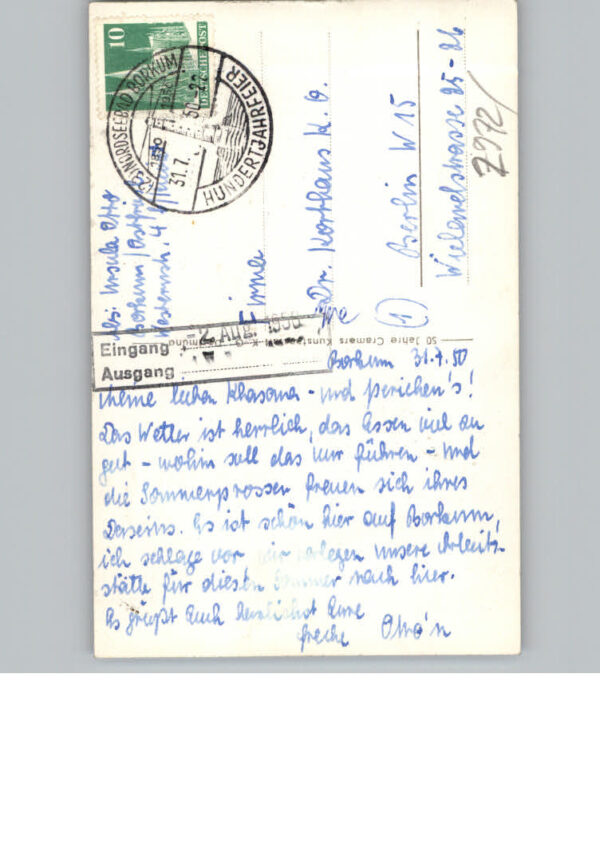 10
DEUTSCHE POST
(23) NORDSEEBAD BORKUM
HUNDERTJAHRFEIER
31.7.50
Abs. Ursula Otto
Borkum/Ostfr.
Westerstr. 4
Firma
Dr. Korthaus K.G.
Berlin W 15
Wielandstrasse 25-26
(1)
7972/
50 Jahre Cramers Kunst K.G. Dortmund
Eingang
2. Aug. 1950
Ausgang
Borkum 31.7.50
Meine lieben Klasona - und perichen's!
Das Wetter ist herrlich, das Essen viel zu
gut - wohin soll das nur führen - und
die Sommerprossen freuen sich ihres
Daseins. Es ist schön hier auf Borkum,
ich schlage vor wir verlegen unsere Arbeits-
stätte für diesen Sommer nach hier.
Es grüßt Euch herzlichst Eure
freche Otto'n